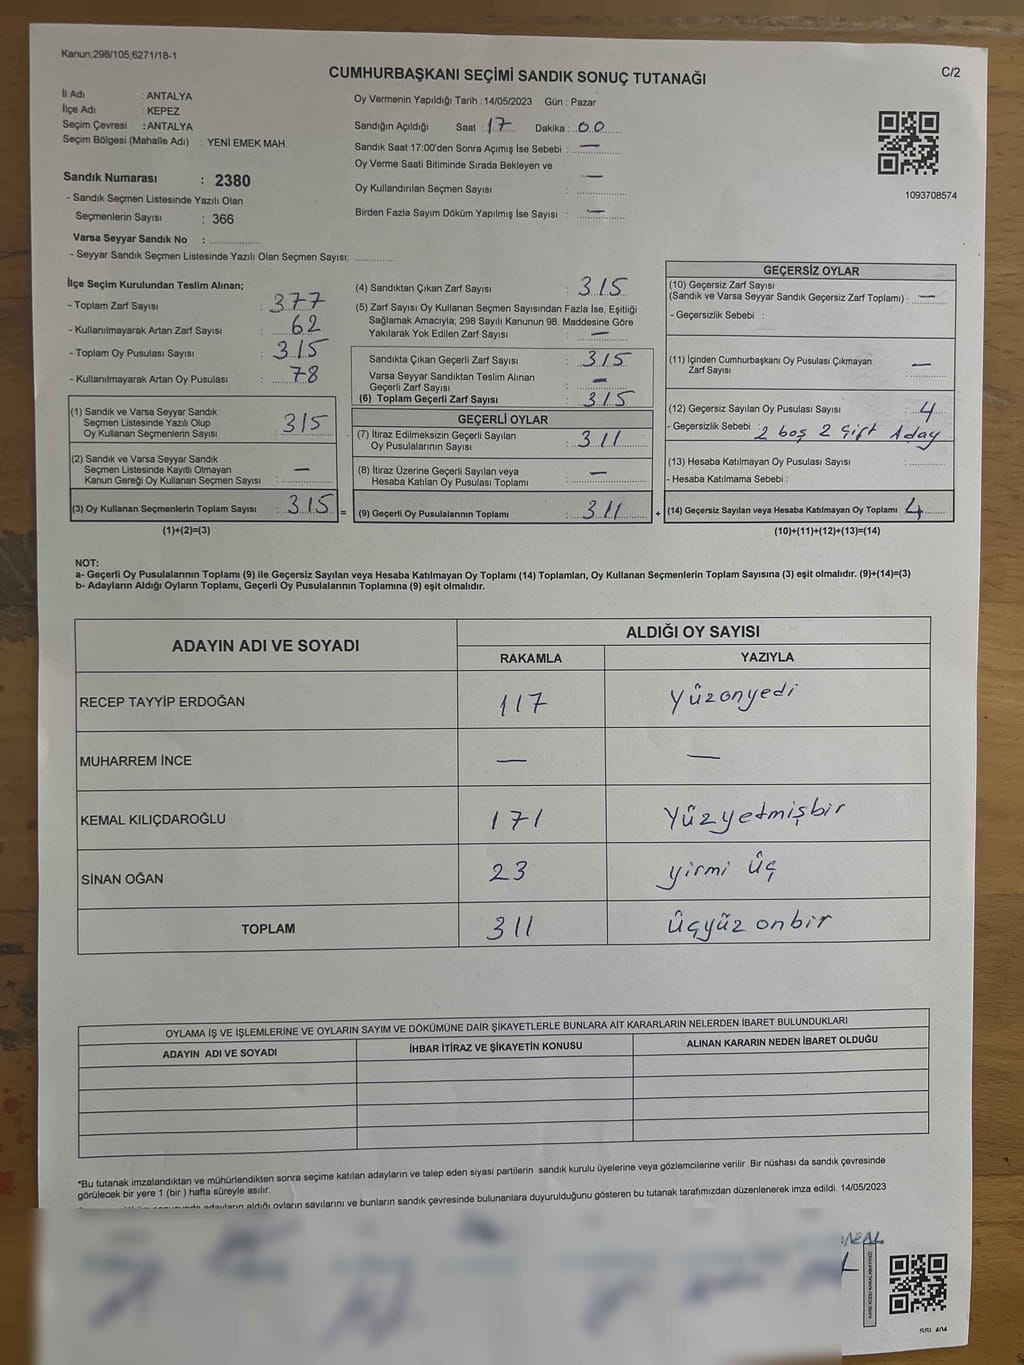 Kanun;298/105;6271/18-1
C/2
CUMHURBAŞKANI SEÇİMİ SANDIK SONUÇ TUTANAĞI
İl Adı : ANTALYA
İlçe Adı : KEPEZ
Seçim Çevresi : ANTALYA
Seçim Bölgesi (Mahalle Adı) : YENİ EMEK MAH.
Sandık Numarası : 2380
- Sandık Seçmen Listesinde Yazılı Olan
Seçmenlerin Sayısı : 366
Varsa Seyyar Sandık No : ..............
- Seyyar Sandık Seçmen Listesinde Yazılı Olan Seçmen Sayısı: ............
Oy Vermenin Yapıldığı Tarih : 14/05/2023 Gün : Pazar
Sandığın Açıldığı Saat : 17 Dakika : 00
Sandık Saat 17:00'den Sonra Açımış İse Sebebi : —
Oy Verme Saati Bitiminde Sırada Bekleyen ve
Oy Kullandırılan Seçmen Sayısı : —
Birden Fazla Sayım Döküm Yapılmış İse Sayısı : —
1093708574
İlçe Seçim Kurulundan Teslim Alınan;
- Toplam Zarf Sayısı : 377
- Kullanılmayarak Artan Zarf Sayısı : 62
- Toplam Oy Pusulası Sayısı : 315
- Kullanılmayarak Artan Oy Pusulası : 78
(1) Sandık ve Varsa Seyyar Sandık
Seçmen Listesinde Yazılı Olup
Oy Kullanan Seçmenlerin Sayısı : 315
(2) Sandık ve Varsa Seyyar Sandık
Seçmen Listesinde Kayıtlı Olmayan
Kanun Gereği Oy Kullanan Seçmen Sayısı : —
(3) Oy Kullanan Seçmenlerin Toplam Sayısı : 315 =
(1)+(2)=(3)
(4) Sandıktan Çıkan Zarf Sayısı : 315
(5) Zarf Sayısı Oy Kullanan Seçmen Sayısından Fazla İse, Eşitliği
Sağlamak Amacıyla; 298 Sayılı Kanunun 98. Maddesine Göre
Yakılarak Yok Edilen Zarf Sayısı : —
Sandıkta Çıkan Geçerli Zarf Sayısı : 315
Varsa Seyyar Sandıktan Teslim Alınan
Geçerli Zarf Sayısı : —
(6) Toplam Geçerli Zarf Sayısı : 315
GEÇERLİ OYLAR
(7) İtiraz Edilmeksizin Geçerli Sayılan
Oy Pusulalarının Sayısı : 311
(8) İtiraz Üzerine Geçerli Sayılan veya
Hesaba Katılan Oy Pusulası Toplamı : —
(9) Geçerli Oy Pusulalarının Toplamı : 311 +
GEÇERSİZ OYLAR
(10) Geçersiz Zarf Sayısı
(Sandık ve Varsa Seyyar Sandık Geçersiz Zarf Toplamı) : —
- Geçersizlik Sebebi :
(11) İçinden Cumhurbaşkanı Oy Pusulası Çıkmayan
Zarf Sayısı : —
(12) Geçersiz Sayılan Oy Pusulası Sayısı : 4
- Geçersizlik Sebebi : 2 boş 2 Çift Aday
(13) Hesaba Katılmayan Oy Pusulası Sayısı : ............
- Hesaba Katılmama Sebebi :
(14) Geçersiz Sayılan veya Hesaba Katılmayan Oy Toplamı 4
(10)+(11)+(12)+(13)=(14)
NOT:
a- Geçerli Oy Pusulalarının Toplamı (9) ile Geçersiz Sayılan veya Hesaba Katılmayan Oy Toplamı (14) Toplamları, Oy Kullanan Seçmenlerin Toplam Sayısına (3) eşit olmalıdır. (9)+(14)=(3)
b- Adayların Aldığı Oyların Toplamı, Geçerli Oy Pusulalarının Toplamına (9) eşit olmalıdır.
ADAYIN ADI VE SOYADI
ALDIĞI OY SAYISI
RAKAMLA YAZIYLA
RECEP TAYYİP ERDOĞAN 117 Yüzonyedi
MUHARREM İNCE — —
KEMAL KILIÇDAROĞLU 171 Yüzyetmişbir
SİNAN OĞAN 23 yirmi üç
TOPLAM 311 Üçyüz onbir
OYLAMA İŞ VE İŞLEMLERİNE VE OYLARIN SAYIM VE DÖKÜMÜNE DAİR ŞİKAYETLERLE BUNLARA AİT KARARLARIN NELERDEN İBARET BULUNDUKLARI
ADAYIN ADI VE SOYADI İHBAR İTİRAZ VE ŞİKAYETİN KONUSU ALINAN KARARIN NEDEN İBARET OLDUĞU
*Bu tutanak imzalandıktan ve mühürlendikten sonra seçime katılan adayların ve talep eden siyasi partilerin sandık kurulu üyelerine veya gözlemcilerine verilir .Bir nüshası da sandık çevresinde
görülecek bir yere 1 (bir ) hafta süreyle asılır.
adayların aldığı oyların sayılarını ve bunların sandık çevresinde bulunanlara duyurulduğunu gösteren bu tutanak tarafımızdan düzenlenerek imza edildi. 14/05/2023